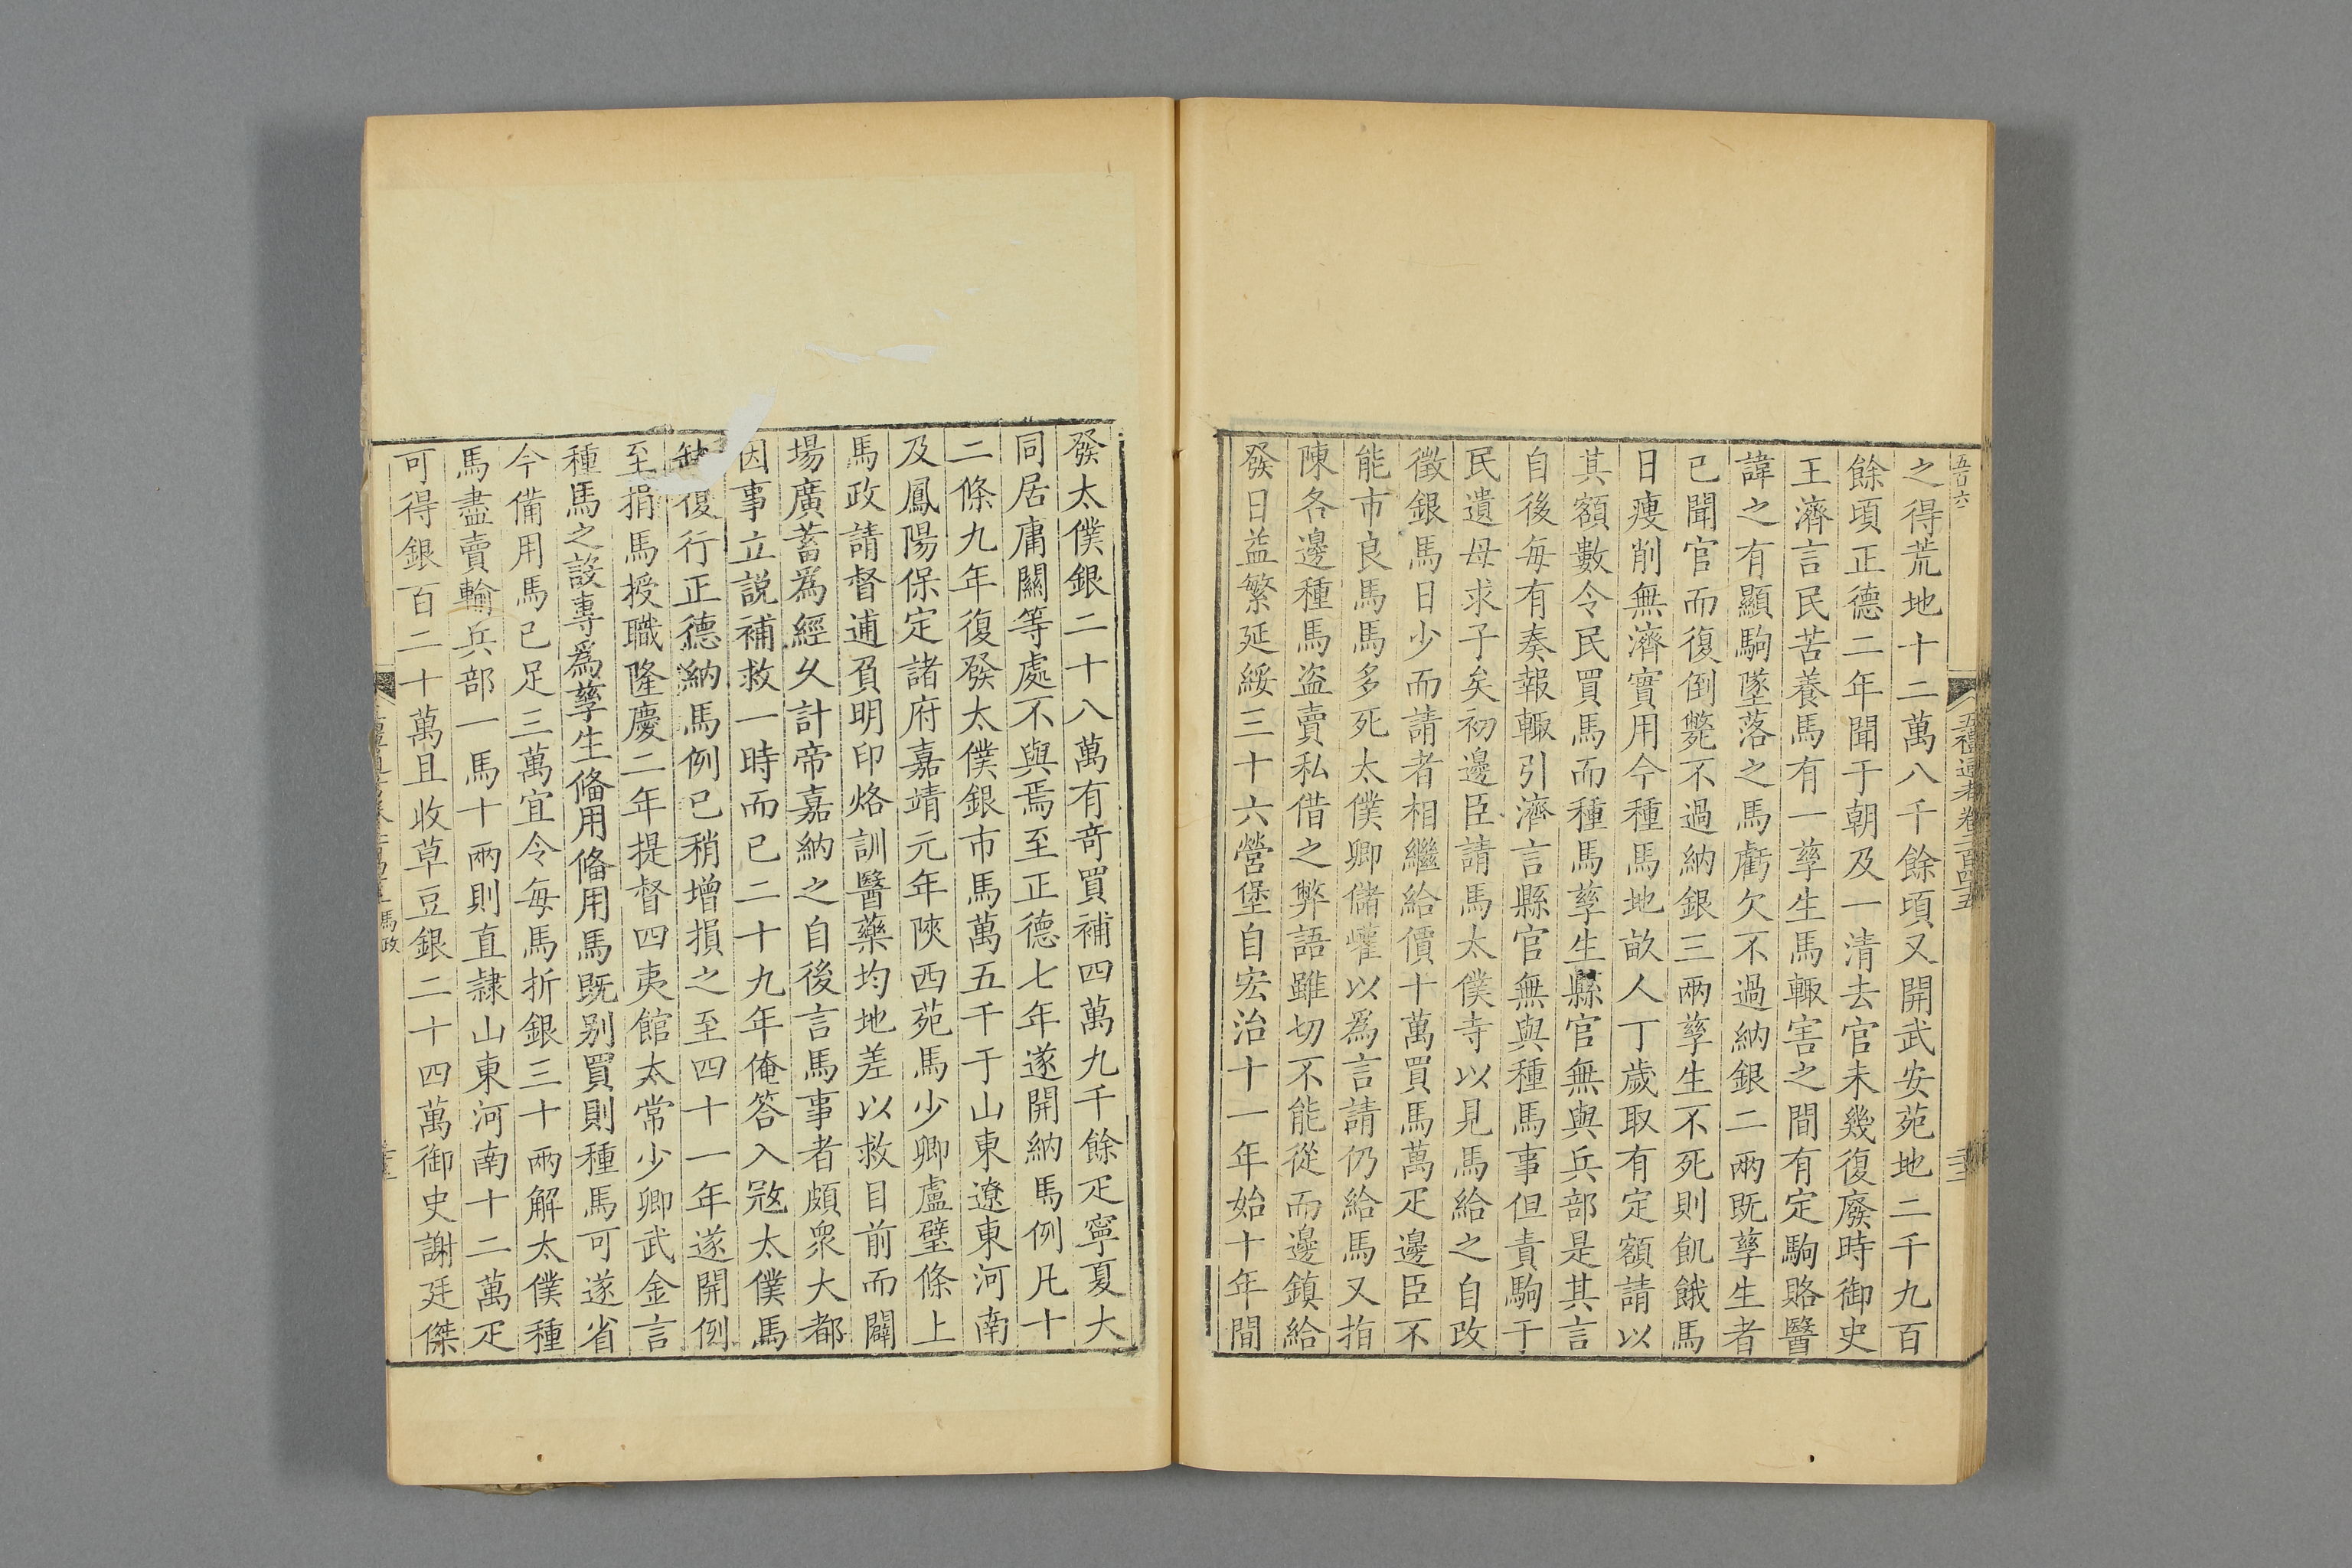 五百六
五禮通考卷二百四十五
之得荒地十二萬八千餘頃又開武安苑地二千九百
餘頃正德二年聞于朝及一清去官未幾復廢時御史
王濟言民苦養馬有一孳生馬輒害之間有定駒賂醫
諱之有顯駒墜落之馬虧欠不過納銀二兩既孳生者
已聞官而復倒斃不過納銀三兩孳生不死則飢餓馬
日瘦削無濟實用今種馬地畝人丁歲取有定額請以
其額數令民買馬而種馬孳生縣官無與兵部是其言
自後每有奏報輒引濟言縣官無與種馬事但責駒于
民遺母求子矣初邊臣請馬太僕寺以見馬給之自改
徵銀馬日少而請者相繼給價十萬買馬萬疋邊臣不
能市良馬馬多死太僕卿儲巏以爲言請仍給馬又指
陳各邊種馬盜賣私借之弊語雖切不能從而邊鎮給
發日益繁延綏三十六營堡自宏治十一年始十年間
發太僕銀二十八萬有奇買補四萬九千餘疋寧夏大
同居庸關等處不與焉至正德七年遂開納馬例凡十
二條九年復發太僕銀市馬萬五千于山東遼東河南
及鳳陽保定諸府嘉靖元年陝西苑馬少卿盧璧條上
馬政請督逋負明印烙訓醫藥均地差以救目前而闢
場廣蓄爲經久計帝嘉納之自後言馬事者頗衆大都
因事立説補救一時而已二十九年俺答入寇太僕馬
缺復行正德納馬例已稍增損之至四十一年遂開例
至捐馬授職隆慶二年提督四夷館太常少卿武金言
種馬之設專爲孳生備用備用馬既别買則種馬可遂省
今備用馬已足三萬宜令每馬折銀三十兩解太僕種
馬盡賣輸兵部一馬十兩則直隸山東河南十二萬疋
可得銀百二十萬且收草豆銀二十四萬御史謝廷傑
馬政